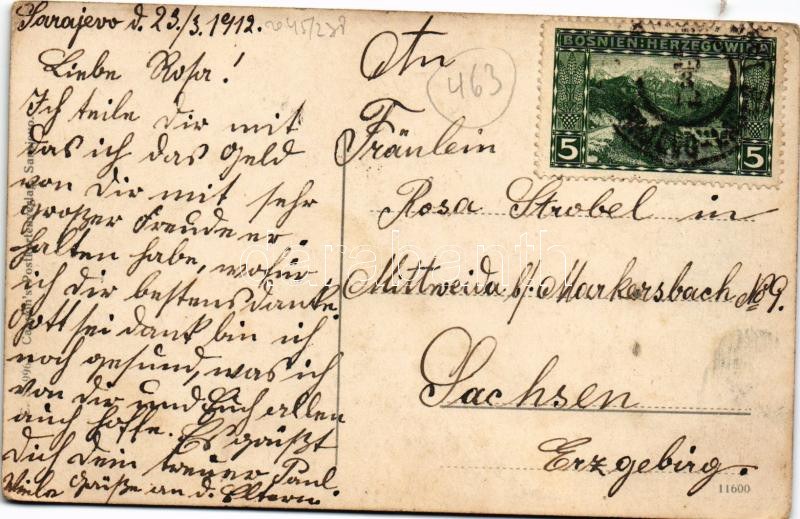 Sarajevo d. 23./3. 1912.
Liebe Rosa!
Ich teile dir mit
das ich das Geld
von dir mit sehr
großer Freude er
halten habe, wofür
ich dir bestens danke
Gott sei dank bin ich
noch gesund, was ich
von dir und Euch allen
auch hoffe. Es grüßt
dich dein treuer Paul
Viele Grüße an d. Eltern.
463
An
Fräulein
Rosa Strobel in
Mittweida b/. Markersbach No 9.
Sachsen
Erzgebirg.
BOSNIEN-HERZEGOWINA
5 5
11600
darabanth